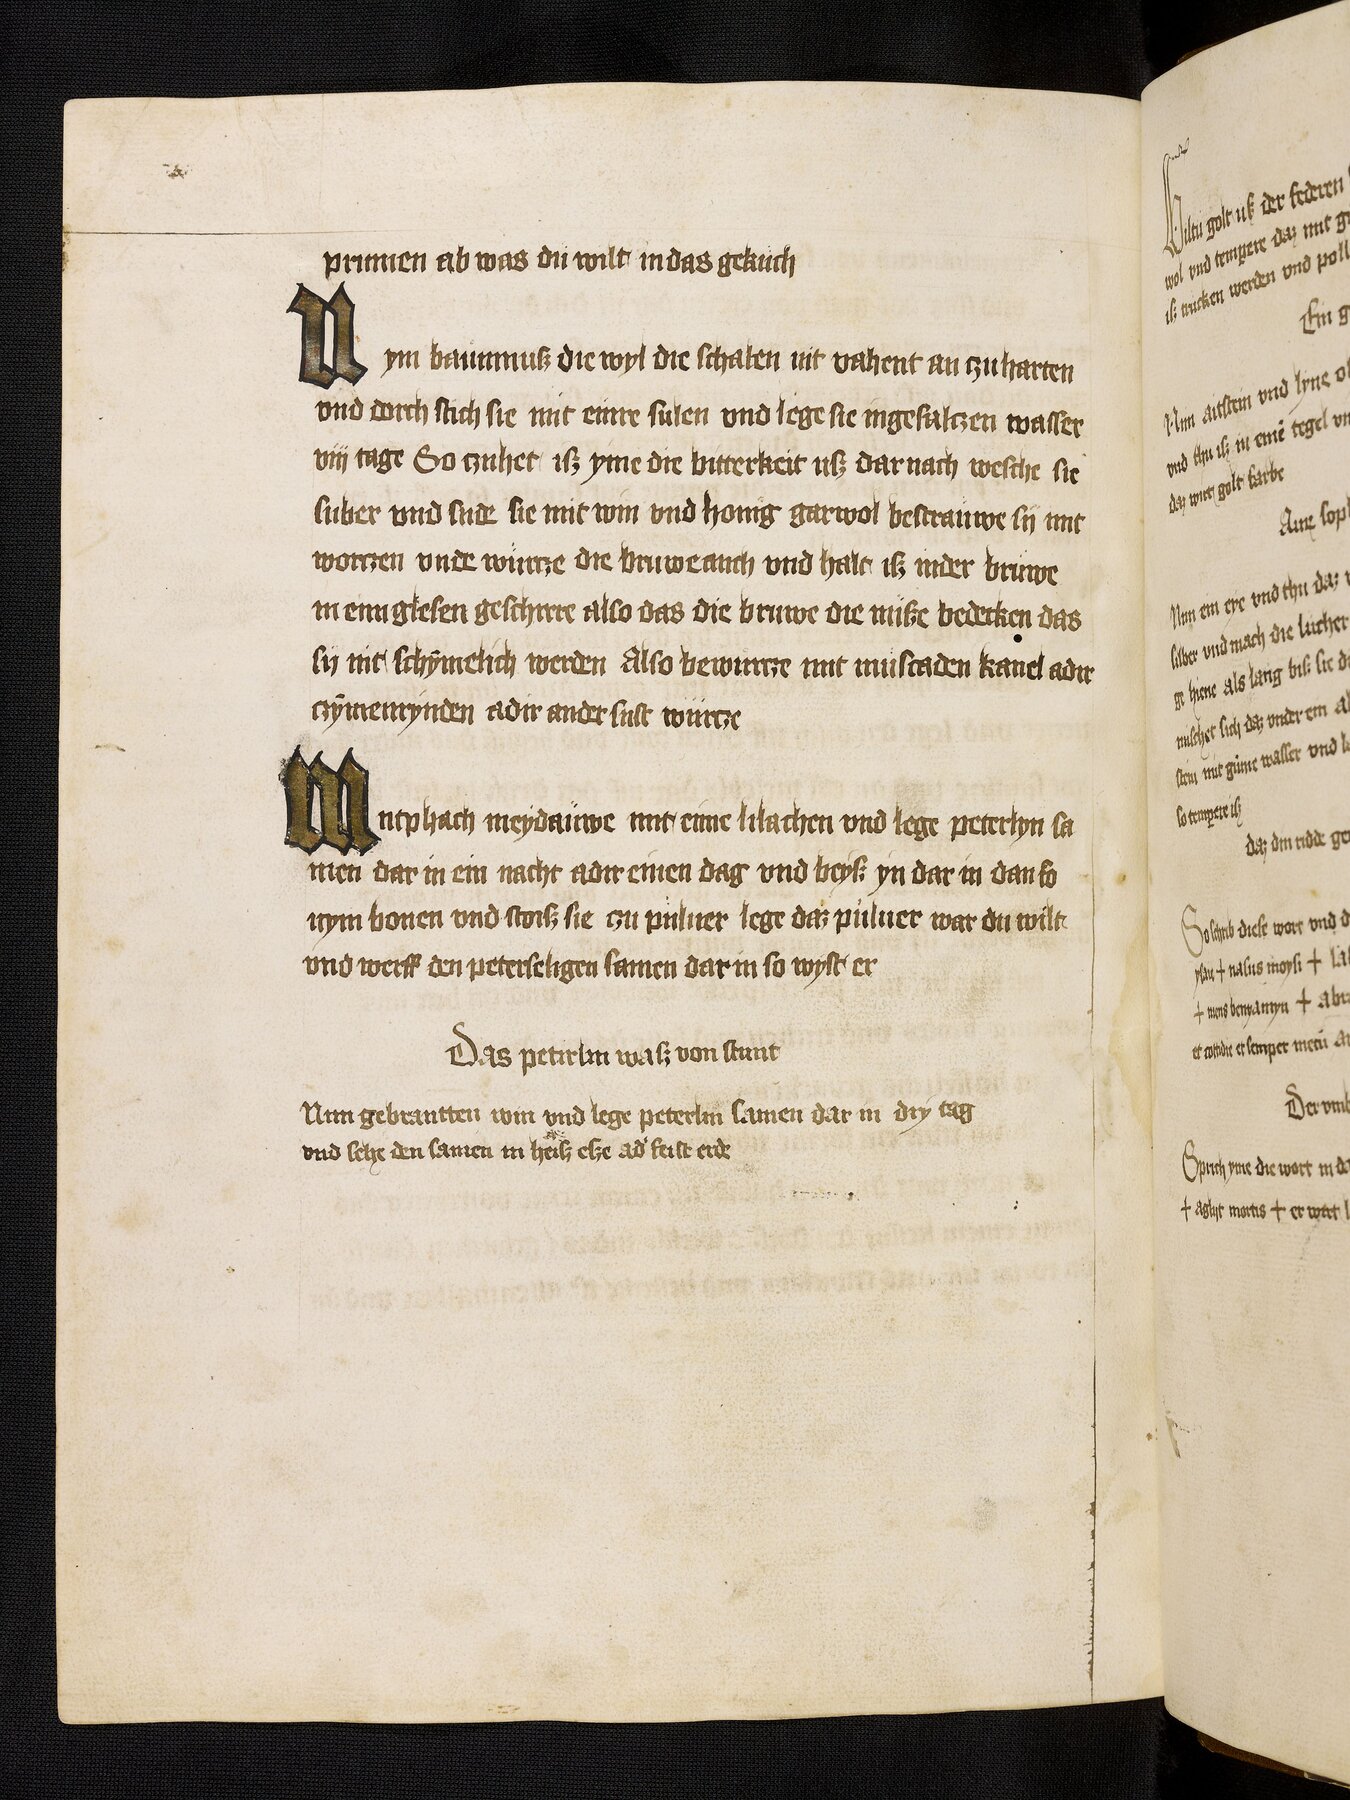 prumen ab was du wilt in das gekuch
Nym baummusz die wyl die schalen nit vahent an czu harten
vnd dorch stich sie mit einre sulen vnd lege sie in gesaltzen wasser
viij tage So czuhet isz yme die bitterkeit usz dar nach wesche sie
suber vnd sude sie mit win vnd honig gar wol bestrauwe sij mit
wortzen vnde wurtze die bruwe auch vnd halt isz in der bruwe
in eim glesen geschirre also das die bruwe die nusze bedecken das
sij nit schymelich werden Also bewurtze mit muscaden kanel adir
czymenrynden adir ander sust wurtze
Untphach meydauwe mit eime lilachen vnd lege peterlyn sa
men dar in ein nacht adir einen dag vnd beysz yn dar in dan so
nym bonen vnd stosz sie czu puluer lege daz puluer war du wilt
vnd werff den peterseligen samen dar in so wyst er
Das petirlin wasz von stunt
Nim gebrantten win vnd lege peterlin samen dar in dry tag
vnd sehe den samen in heisz esze ad' feist erde
Wiltu golt usz der federen
wol vnd tempere daz mit
isz trucken werden vnd
Ein
Nim aitstein vnd lyne
vnd thu isz in eine tegel
daz wirt golt farbe
Nim ein eye vnd thu daz
silber vnd mach die lucher
als lang bisz sie
mischet sich daz vnder ein
stein mit gume wasser vnd
so tempere isz
daz din ridde
So schrib diese wort vnd
+ nasus moysi +
+ mens benyamyn +
et cotidie et semper
Sprich yme die wort in
+ mortis + er wirt